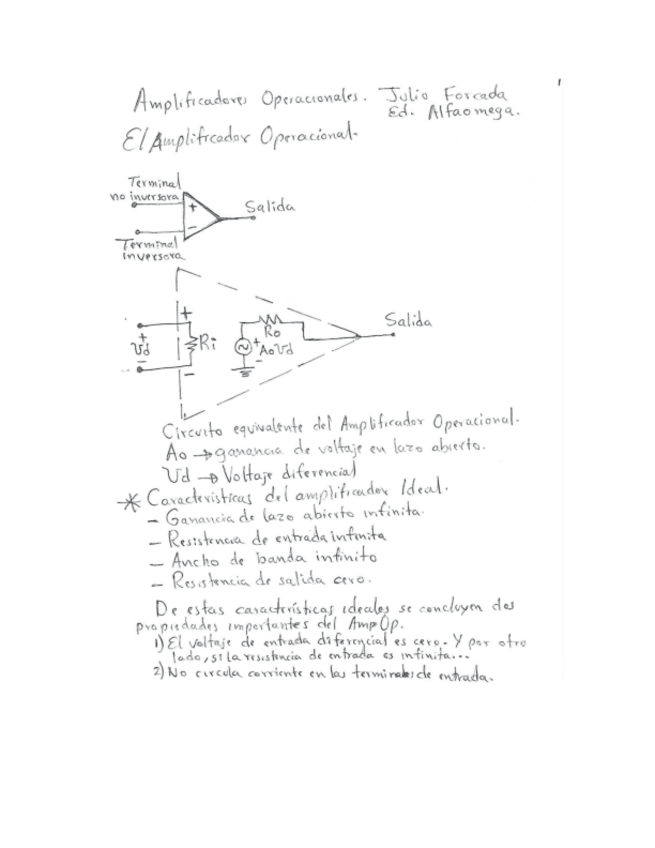 1
Amplificadores Operacionales. Julio Forcada
Ed. Alfaomega.
El Amplificador Operacional.
Terminal
no inversora
+
Salida
-
Terminal
Inversora
+
Salida
+
Vd
-
Ri
Ro
+
AoVd
-
-
Circuito equivalente del Amplificador Operacional.
Ao → ganancia de voltaje en lazo abierto.
Vd → Voltaje diferencial
* Características del amplificador Ideal.
- Ganancia de lazo abierto infinita.
- Resistencia de entrada infinita
- Ancho de banda infinito
- Resistencia de salida cero.
De estas características ideales se concluyen dos
propiedades importantes del AmpOp.
1) El voltaje de entrada diferencial es cero. Y por otro
lado, si la resistencia de entrada es infinita...
2) No circula corriente en las terminales de entrada.